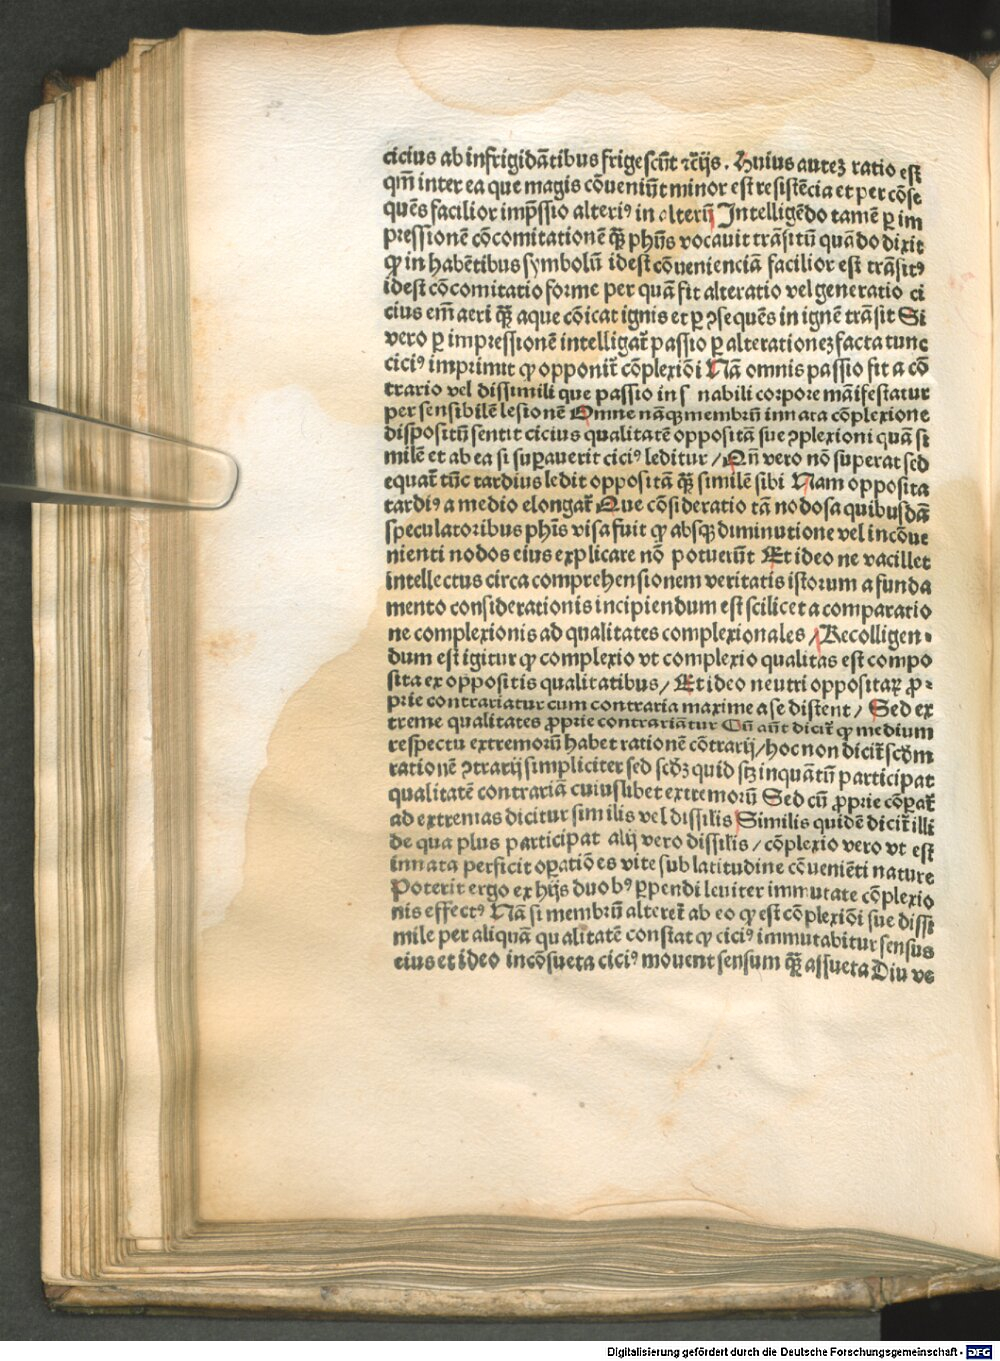 cicius ab infrigidātibus frigescūt ⁊c̄ijs. Huius autez ratio est
qm̄ inter ea que magis cōueniūt minor est resistēcia et per cōse
quēs facilior imp̄ssio alteriꝰ in alterū Intelligēdo tamē ꝑ im
pressionē cōcomitationē qꝫ̄ phūs vocauit trāsitū quādo dixit
ꝙ in habētibus symbolū idest cōuenienciā facilior est trāsitꝰ
idest cōcomitatio forme per quā fit alteratio vel generatio ci
cius em̄ aeri qꝫ̄ aque cōicat ignis et ꝑ ↄsequēs in ignē trāsit Si
vero ꝑ impressionē intelligat᷑ passio ꝑ alterationez facta tunc
ciciꝰ imprimit ꝙ opponit᷑ cōplexiōi Nā omnis passio fit a cō
trario vel dissimili que passio in s nabili corpore māifestatur
per sensibilē lesionē Omne nāqꝫ membrū innata cōplexione
dispositū sentit cicius qualitatē oppositā sue ↄplexioni quā si
milē et ab ea si suꝑauerit ciciꝰ leditur / Qn̄ vero nō superat sed
equat᷑ tūc tardius ledit oppositā qꝫ̄ similē sibi Nam opposita
tardiꝰ a medio elongat᷑ Que cōsideratio tā nodosa quibusdā
speculatoribus phīs visa fuit ꝙ absqꝫ diminutione vel incōue
nienti nodos eius explicare nō potuerūt Et ideo ne vacillet
intellectus circa comprehensionem veritatis istorum a funda
mento considerationis incipiendum est scilicet a comparatio
ne complexionis ad qualitates complexionales / Recolligen-
dum est igitur ꝙ complexio vt complexio qualitas est compo
sita ex oppositis qualitatibus / Et ideo neutri oppositaꝝ ꝓ-
prie contrariatur cum contraria maxime a se distent / Sed ex
treme qualitates ꝓprie contrariātur Cū aūt dicit᷑ ꝙ medium
respectu extremorū habet rationē cōtrarij / hoc non dicit᷑ scd̄m
rationē ↄtrarij simpliciter sed scd̄ꝫ quid sꝫ inquātū participat
qualitatē contrariā cuiuslibet extremorū Sed cū ꝓprie cōꝑat᷑
ad extremas dicitur similis vel dissilis Similis quidē dicit᷑ illi
de qua plus participat alij vero dissilis / cōplexio vero vt est
innata perficit oꝑatiōes vite sub latitudine cōueniēti nature
Poterit ergo ex hijs duobꝰ ꝑpendi leuiter immutate cōplexio
nis effectꝰ Nā si membrū alteret᷑ ab eo ꝙ est cōplexiōi sue dissi
mile per aliquā qualitatē constat ꝙ ciciꝰ immutabitur sensus
eius et ideo incōsueta ciciꝰ mouent sensum qꝫ̄ assueta Diu ve
Digitalisierung gefördert durch die Deutsche Forschungsgemeinschaft - DFG